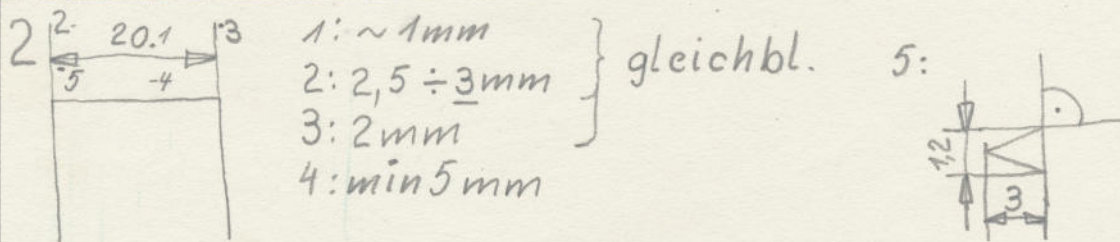 2
2
20.1
3
5
4
1: ~ 1mm
2: 2,5 ÷ 3mm
3: 2mm
4: min 5mm
gleichbl.
5:
1,2
3